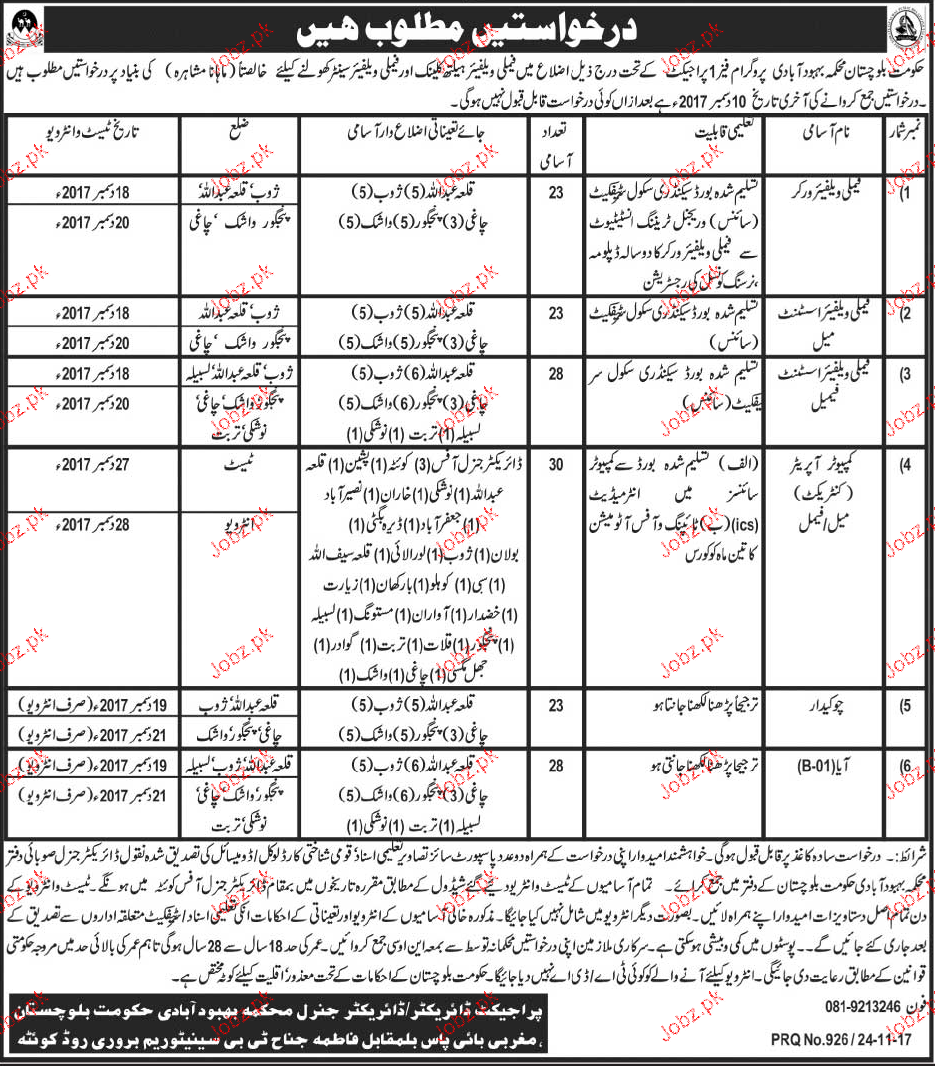 درخواستیں مطلوب ہیں
حکومت بلوچستان محکمہ بہبود آبادی پروگرام فیز 1 پراجیکٹ کے تحت درج ذیل اضلاع میں فیملی ویلفیئر ہیلتھ کلینک اور فیملی ویلفیئر سینٹر کھولنے کیلئے خالصتاً (ماہانہ مشاہرہ) کی بنیاد پر درخواستیں مطلوب ہیں
۔ درخواستیں جمع کروانے کی آخری تاریخ 10 دسمبر 2017ء ہے بعد ازاں کوئی درخواست قابل قبول نہیں ہوگی۔
نمبر شمار نام آسامی تعلیمی قابلیت تعداد آسامی جائے تعیناتی اضلاع وار آسامی ضلع تاریخ ٹیسٹ و انٹرویو
(1 فیملی ویلفیئر ورکر تسلیم شدہ بورڈ سیکنڈری سکول سرٹیفکیٹ 23 قلعہ عبداللہ (5) ژوب (5) ژوب‘ قلعہ عبداللہ‘ 18 دسمبر 2017ء
(سائنس) و ریجنل ٹریننگ انسٹیٹیوٹ چاغی (3) پنجگور (5) واشک (5) پنجگور واشک‘ چاغی 20 دسمبر 2017ء
سے فیملی ویلفیئر ورکر کا دو سالہ ڈپلومہ
،نرسنگ کونسل کی رجسٹریشن
(2 فیملی ویلفیئر اسسٹنٹ تسلیم شدہ بورڈ سیکنڈری سکول سرٹیفکیٹ 23 قلعہ عبداللہ (5) ژوب (5) ژوب‘ قلعہ عبداللہ 18 دسمبر 2017ء
میل (سائنس) چاغی (3) پنجگور (5) واشک (5) پنجگور واشک‘ چاغی 20 دسمبر 2017ء
(3 فیملی ویلفیئر اسسٹنٹ تسلیم شدہ بورڈ سیکنڈری سکول سر 28 قلعہ عبداللہ (6) ژوب (5) ژوب‘ قلعہ عبداللہ‘ لسبیلہ 18 دسمبر 2017ء
فیمیل ٹیفکیٹ (سائنس) چاغی (3) پنجگور (6) واشک (5) پنجگور‘ واشک‘ چاغی‘ 20 دسمبر 2017ء
لسبیلہ (1) تربت (1) نوشکی (1) نوشکی‘ تربت
(4 کمپیوٹر آپریٹر (الف) تسلیم شدہ بورڈ سے کمپیوٹر 30 ڈائریکٹر جنرل آفس (3) کوئٹہ (1) پشین (1) قلعہ ٹیسٹ 27 دسمبر 2017ء
(کنٹریکٹ) سائنسز میں انٹرمیڈیٹ عبداللہ (1) نوشکی (1) خاران (1) نصیر آباد
میل/فیمل (ics) (ب) ٹائپنگ و آفس آٹومیشن (1) جعفر آباد (1) ڈیرہ بگٹی (1) انٹرویو 28 دسمبر 2017ء
کا تین ماہ کورس بولان (1) ژوب (1) لورالائی (1) قلعہ سیف اللہ
(1) سبی (1) کوہلو (1) بارکھان (1) زیارت
(1) خضدار (1) آواران (1) مستونگ (1) لسبیلہ
(1) پنجگور (1) قلات (1) تربت (1) گوادر (1)
جھل مگسی (1) چاغی (1) واشک (1)
(5 چوکیدار ترجیحاً پڑھنا لکھنا جانتا ہو 23 قلعہ عبداللہ (5) ژوب (5) قلعہ عبداللہ‘ ژوب 19 دسمبر 2017ء (صرف انٹرویو)
چاغی (3) پنجگور (5) واشک (5) چاغی‘ پنجگور‘ واشک 21 دسمبر 2017ء (صرف انٹرویو)
(6 آیا (B-01) ترجیحاً پڑھنا لکھنا جانتی ہو 28 قلعہ عبداللہ (6) ژوب (5) قلعہ عبداللہ‘ ژوب‘ لسبیلہ 19 دسمبر 2017ء (صرف انٹرویو)
چاغی (3) پنجگور (6) واشک (5) پنجگور‘ واشک‘ چاغی‘ 21 دسمبر 2017ء (صرف انٹرویو)
لسبیلہ (1) تربت (1) نوشکی (1) نوشکی‘ تربت
شرائط:۔ درخواست سادہ کاغذ پر قابل قبول ہوگی۔ خواہشمند امیدوار اپنی درخواست کے ہمراہ دو عدد پاسپورٹ سائز تصاویر تعلیمی اسناد‘ قومی شناختی کارڈ لوکل/ڈومیسائل کی تصدیق شدہ نقول ڈائریکٹر جنرل صوبائی دفتر
محکمہ بہبود آبادی حکومت بلوچستان کے دفتر میں جمع کرائے۔ تمام آسامیوں کے ٹیسٹ و انٹرویو دیئے گئے شیڈول کے مطابق مقررہ تاریخوں میں بمقام ڈائریکٹر جنرل آفس کوئٹہ میں ہونگے۔ ٹیسٹ و انٹرویو کے
دن تمام اصل دستاویزات امیدوار اپنے ہمراہ لائیں۔ بصورت دیگر انٹرویو میں شامل نہیں کیا جائیگا۔ مذکورہ خالی آسامیوں کے انٹرویو اور تعیناتی کے احکامات انکی تعلیمی اسناد/سرٹیفکیٹ متعلقہ اداروں سے تصدیق کے
بعد جاری کئے جائیں گے۔ ۔ پوسٹوں میں کمی و بیشی ہوسکتی ہے۔ سرکاری ملازمین اپنی درخواستیں محکمانہ توسط سے بمعہ این او سی جمع کروائیں۔ عمر کی حد 18 سال سے 28 سال ہوگی تاہم عمر کی بالائی حد میں مروجہ حکومتی
قوانین کے مطابق رعایت دی جائیگی۔ انٹرویو کیلئے آنے والے کو کوئی ٹی اے/ڈی اے نہیں دیا جائیگا۔ حکومت بلوچستان کے احکامات کے تحت معذور/اقلیت کیلئے کوٹہ مختص ہے۔
فون 081-9213246
پراجیکٹ ڈائریکٹر/ڈائریکٹر جنرل محکمہ بہبود آبادی حکومت بلوچستان
، مغربی بائی پاس بلمقابل فاطمہ جناح ٹی بی سینیٹوریم بروری روڈ کوئٹہ
PRQ No.926 / 24-11-17
Jobz.pk